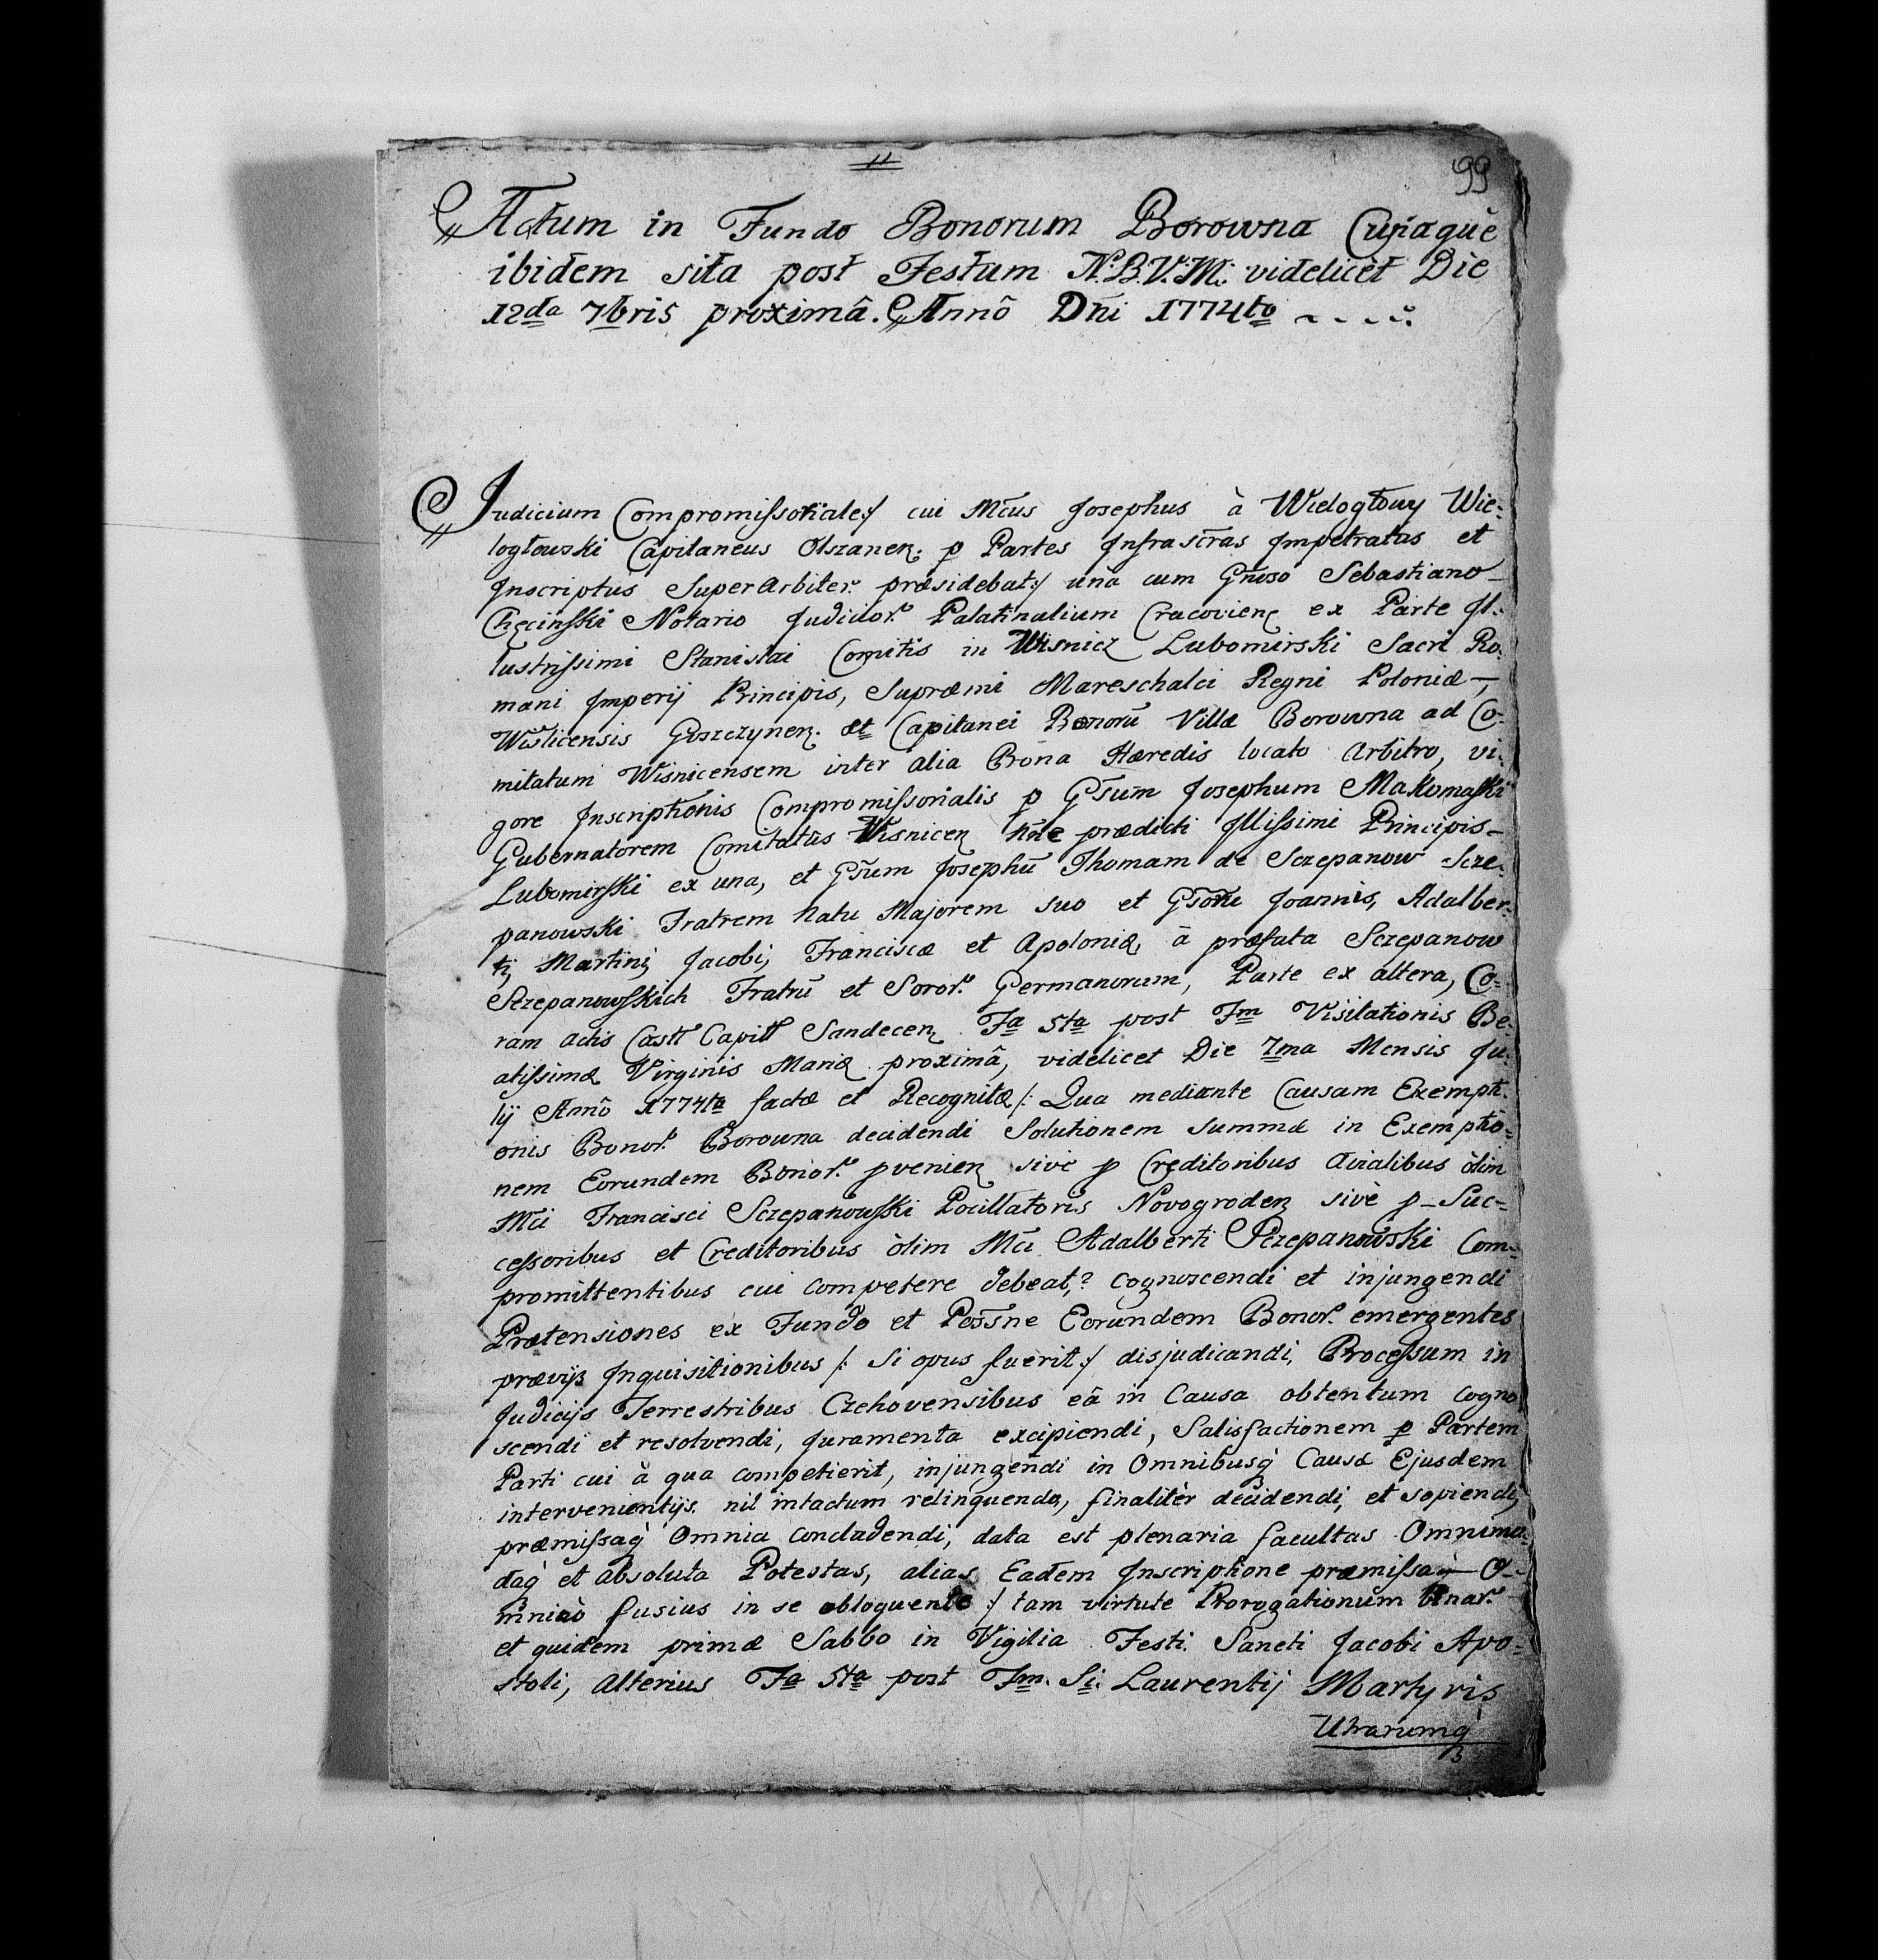 99
Actum in Fundo Bonorum Borowna Curiaque
ibidem sita post Festum N.B.V.M. videlicet Die
12da 7bris proximâ. Annô Dni 1774to
Judicium Compromissoriale:/ cui Mcus Josephus à Wielogłowy Wie=
logłowski Capitaneus Olszanen. p Partes Infrascras Impetratus et
Inscriptus SuperArbiter præsidebat:/ una cum Gnoso Sebastiano
Chęcinski Notario Judicior. Palatinalium Cracovien ex Parte Il=
lustrissimi Stanislai Comitis in Wisnicz Lubomirski Sacri Ro=
mani Imperij Principis, Supræmi Mareschalci Regni Poloniæ,
Wislicensis Goszczynen. et Capitanei Bonorū Villæ Borowna ad Co=
mitatum Wisnicensem inter alia Bona Hæredis locato Arbitro, vi=
gore Inscriptionis Compromissorialis p Gsum Josephum Makomaski
Gubernatorem Comitatus Wisnicen nne prædicti Illissimi Principis
Lubomirski ex una, et Gsum Josephū Thomam de Sczepanow Scze=
panowski Fratrem Natu Majorem suo et Gsorū Joannis, Adalber=
ti, Martini, Jacobi, Franciscæ et Apoloniæ, à præfata Sczepanow
Sczepanowskich Fratrū et Soror. Germanorum, Parte ex altera, Co=
ram actis Castr Capitl Sandecen Fa 5ta post Fm Visitationis Be=
atissimæ Virginis Mariæ proximâ, videlicet Die 7ma Mensis Ju=
lij Annô 1774to factæ et Recognitæ /: Qua mediante Causam Exempti=
onis Bonor. Borowna decidendi Solutionem Summæ in Exemptio=
nem Eorundem Bonor. pvenien sive p Creditoribus Avialibus olim
Mci Francisci Sczepanowski Pocillatoris Novogroden sivè p Suc=
cessoribus et Creditoribus òlim Mci Adalberti Sczepanowski Com=
promittentibus cui competere debeat,? cognoscendi et injungendi
Prætensiones ex Fundo et Possne Eorundem Bonor. emergentes
prævijs Inquisitionibus /: Si opus fuerit :/ disjudicandi, Processum in
Judicijs Terrestribus Czchovensibus eâ in Causa obtentum cogno
scendi et resolvendi, Juramenta excipiendi, Satisfactionem p Partem
Parti cui à qua competierit, injungendi in Omnibusq Causæ Ejusdem
intervenientijs nil intactum relinquendo, finalitèr decidendi, et sopiendi,
præmissaq Omnia concludendi, data est plenaria facultas Omnimo=
daq et absoluta Potestas, alias Eadem Inscriptione præmissa O=
mnia fusius in se obloquente :/ tam virtute Prorogationum binar.
et quidem primæ Sabbo in Vigilia Festi Sancti Jacobi Apo=
stoli, Alterius Fa 5ta post Fm. Si. Laurentij Martyris
Utrarumq